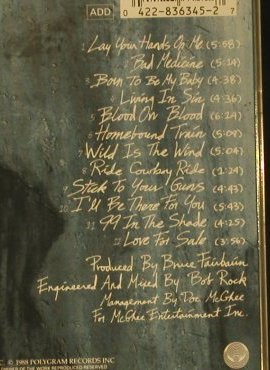 ADD
0 422-836345-2 7
1 Lay Your Hands On Me (5:58)
2 Bad Medicine (5:14)
3 Born To Be My Baby (4:38)
4 Living In Sin (4:36)
5 Blood On Blood (6:24)
6 Homebound Train (5:09)
7 Wild Is The Wind (5:04)
8 Ride Cowboy Ride (1:24)
9 Stick To Your Guns (4:43)
10 I'll Be There For You (5:43)
11 99 In The Shade (4:25)
12 Love For Sale (3:56)
Produced By Bruce Fairbairn
Engineered And Mixed By Bob Rock
Management By Doc McGhee
For McGhee Entertainment Inc.
© 1988 POLYGRAM RECORDS INC
OWNER OF THE WORK REPRODUCED RESERVED